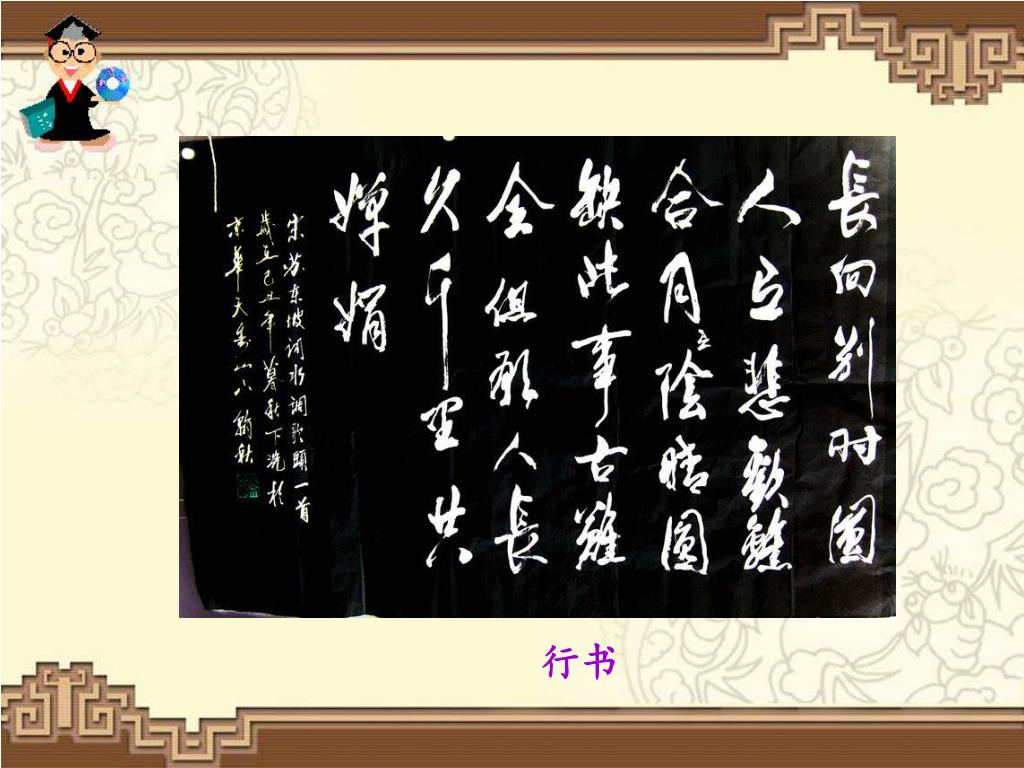 長向别时圓
人有悲歡離
合月有陰晴圓
缺此事古難
全但願人長
久千里共
嬋娟
宋苏东坡词水調歌頭一首
歲在己丑年暮秋下浣於
京華天香
行书